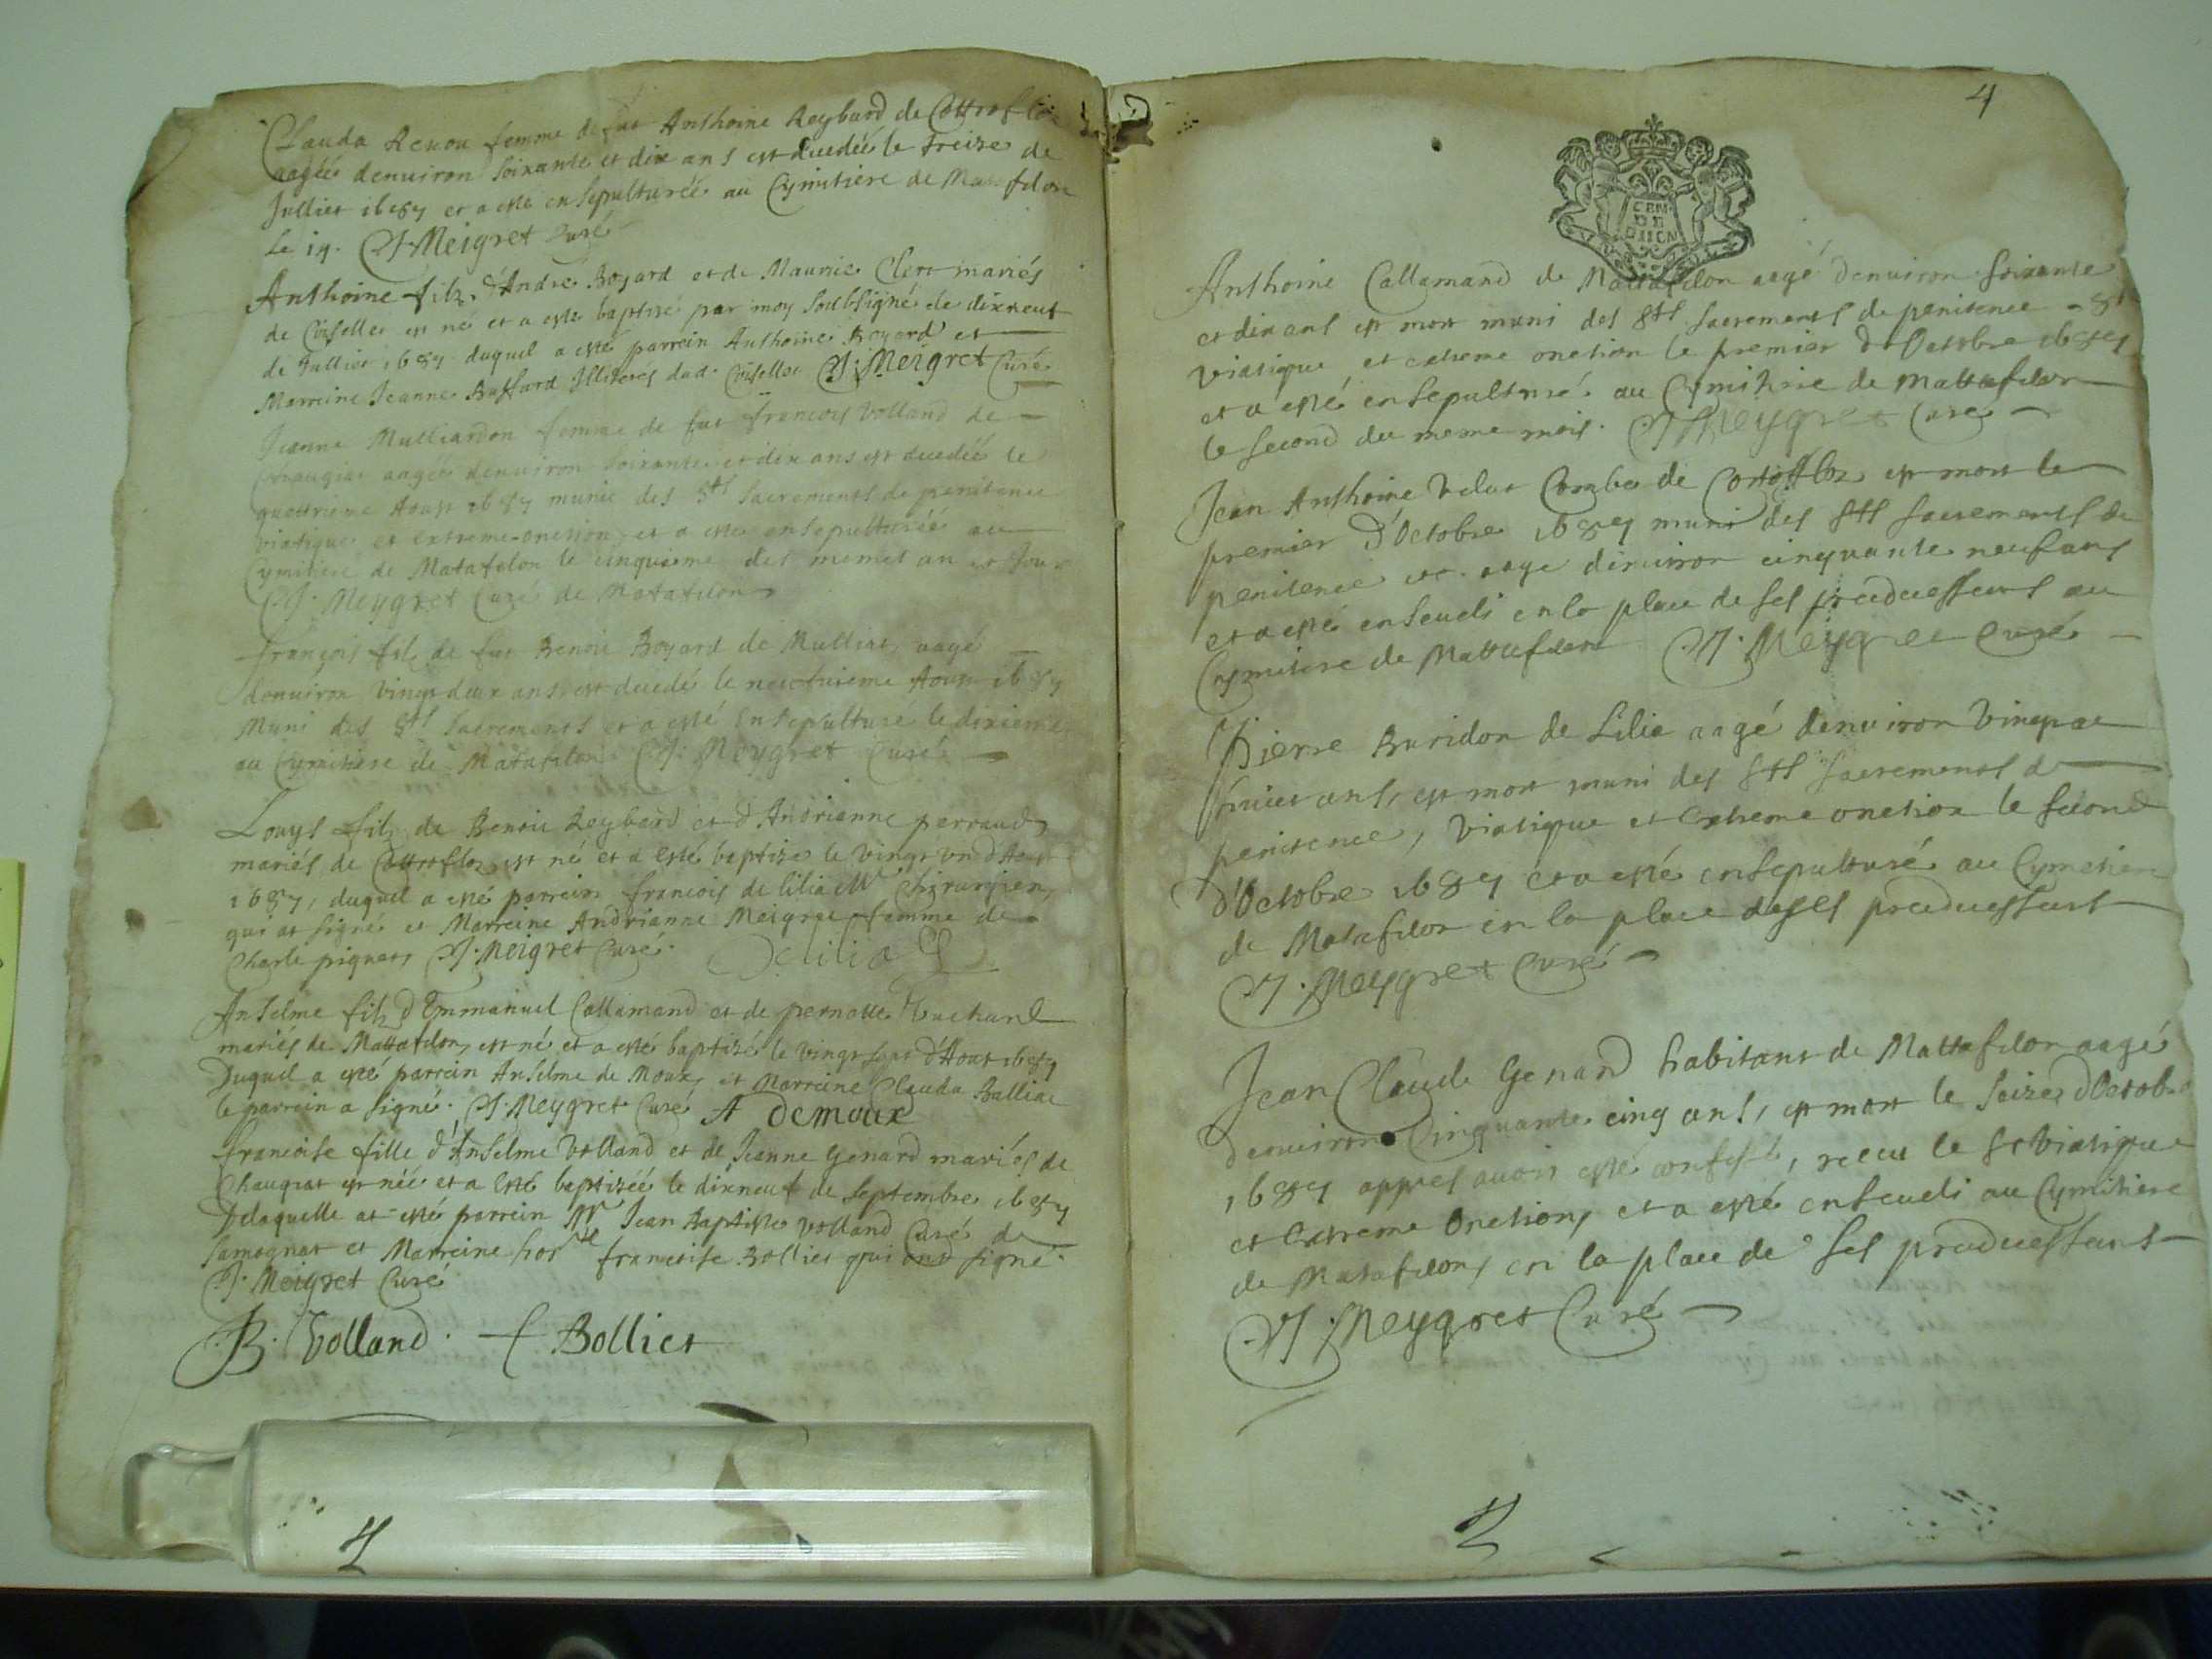 Clauda Renou femme de fut Anthoine Reybard de Cottoflos
aagée denuiron soixante et dix ans est decedée le treize de
Julliet 1687 et a esté ensepulturée au Cymitiere de Matafelon
le 14. J. Meigret Curé
Anthoine filz d'André Boyard et de Maurie Clerc mariés
de Coiselles est né et a esté baptisé par moy soubsigné le dixneuf
de Julliet 1687 duquel a esté parrein Anthoine Boyard et
Marreine Jeanne illiteres dud. Coiselles J. Meigret Curé
Jeanne Mulliardon femme de fut francois Volland de
Chaugiat aagée denuiron soixante et dix ans est decedée le
quattrieme Aoust 1687 munie des Sts sacrements de penitence
viatique et extreme-onction, et a esté ensepulturée au
Cymitiere de Matafelon le cinquieme des memes an et Jour
J. Meygret Curé de Matafelon
françois filz de fut Benoit Boyard de Mulliat, aagé
denuiron vingt deux ans, est decedé le neufuieme Aoust 1687
muni des Sts sacrements et a esté ensepulturé le dixieme
au Cymitiere de Matafelon J. Meygret Curé
Louys filz de Benoit Reybard et d'Andrianne perraud
mariés de Cottoflos est né et a esté baptisé le vingt un d'Aout
1687, duquel a esté parrein francois de lilia Mre Chirurgien,
qui at signé et Marreine Andrianne Meigret femme de
Charle piquet, J. Meigret Curé. Delilia
Anselme filz d'Emmanuel Callamand et de pernette Tuchard
mariés de Mattafelon, est né et a esté baptisé le vingt sept d'Aout 1687
Duquel a esté parrein Anselme de Moux, et Marreine Clauda Balliat
le parrein a signé. J. Meygret Curé A Demoux
francoise fille d'Anselme Volland et de Jeanne Genard mariés de
Chaugiat est née et a esté baptizée le dixneuf de Septembre 1687
Delaquelle at esté parrein Mre Jean Baptiste Volland Curé de
Samognat et Marreine hon.ste francoise Bolliet qui ont signé.
J. Meigret Curé
B. Volland. f Bolliet
4
4
GEN.
DE
DIION
Anthoine Callamand de Mattafelon aagé denuiron soixante
et dix ans est mort muni des Sts sacrements de penitence - St
viatique et extreme onction le premier d'Octobre 1687
et a esté ensepulturé au Cymitiere de Mattafelon
le second du meme mois. J. Meygret Curé
Jean Anthoine Velut Combe de Cortoflos est mort le
premier d'Octobre 1687 muni des Sts sacrements de
penitence etc. aagé denuiron cinquante neuf ans
et a esté enseueli en la place de ses predecesseurs au
Cymitiere de Mattafelon J. Meygret Curé
Pierre Buridon de Lilia aagé denuiron Vingt et
huict ans, est mort muni des Sts sacrements de
penitence, Viatique et extreme onction le second
d'Octobre 1687 et a esté ensepulturé au Cymetiere
de Matafelon en la place de ses predecesseurs
J. Meygret Curé
Jean Claude Genard habitant de Mattafelon aagé
denuiron Cinquante cinq ans, est mort le seize d'Octobre
1687 appres auoir esté confessé, receu le St Viatique
et extreme onction, et a esté enseueli au Cymitiere
de Matafelon, en la place de ses predecesseurs
J. Meygret Curé